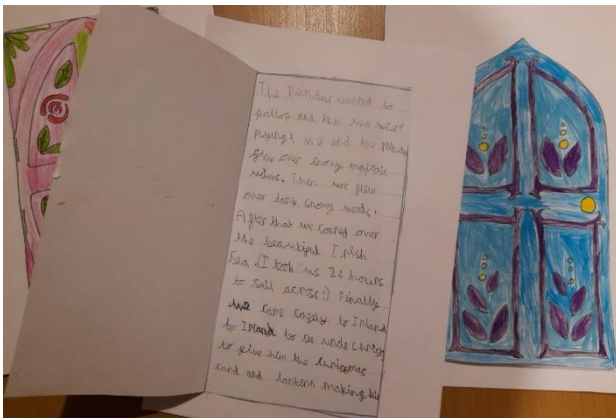 The wanted to
gallop and the was
me and the
flew over snowy majestic
. Then we flew
over dark snowy woods.
After that we soared over
the beautiful Irish
Sea. (I took us 24 hours
to sail across!) Finally
we came safely to Irland
to Irland to see uncle Christy
to give him the Christmas
card and lantern making